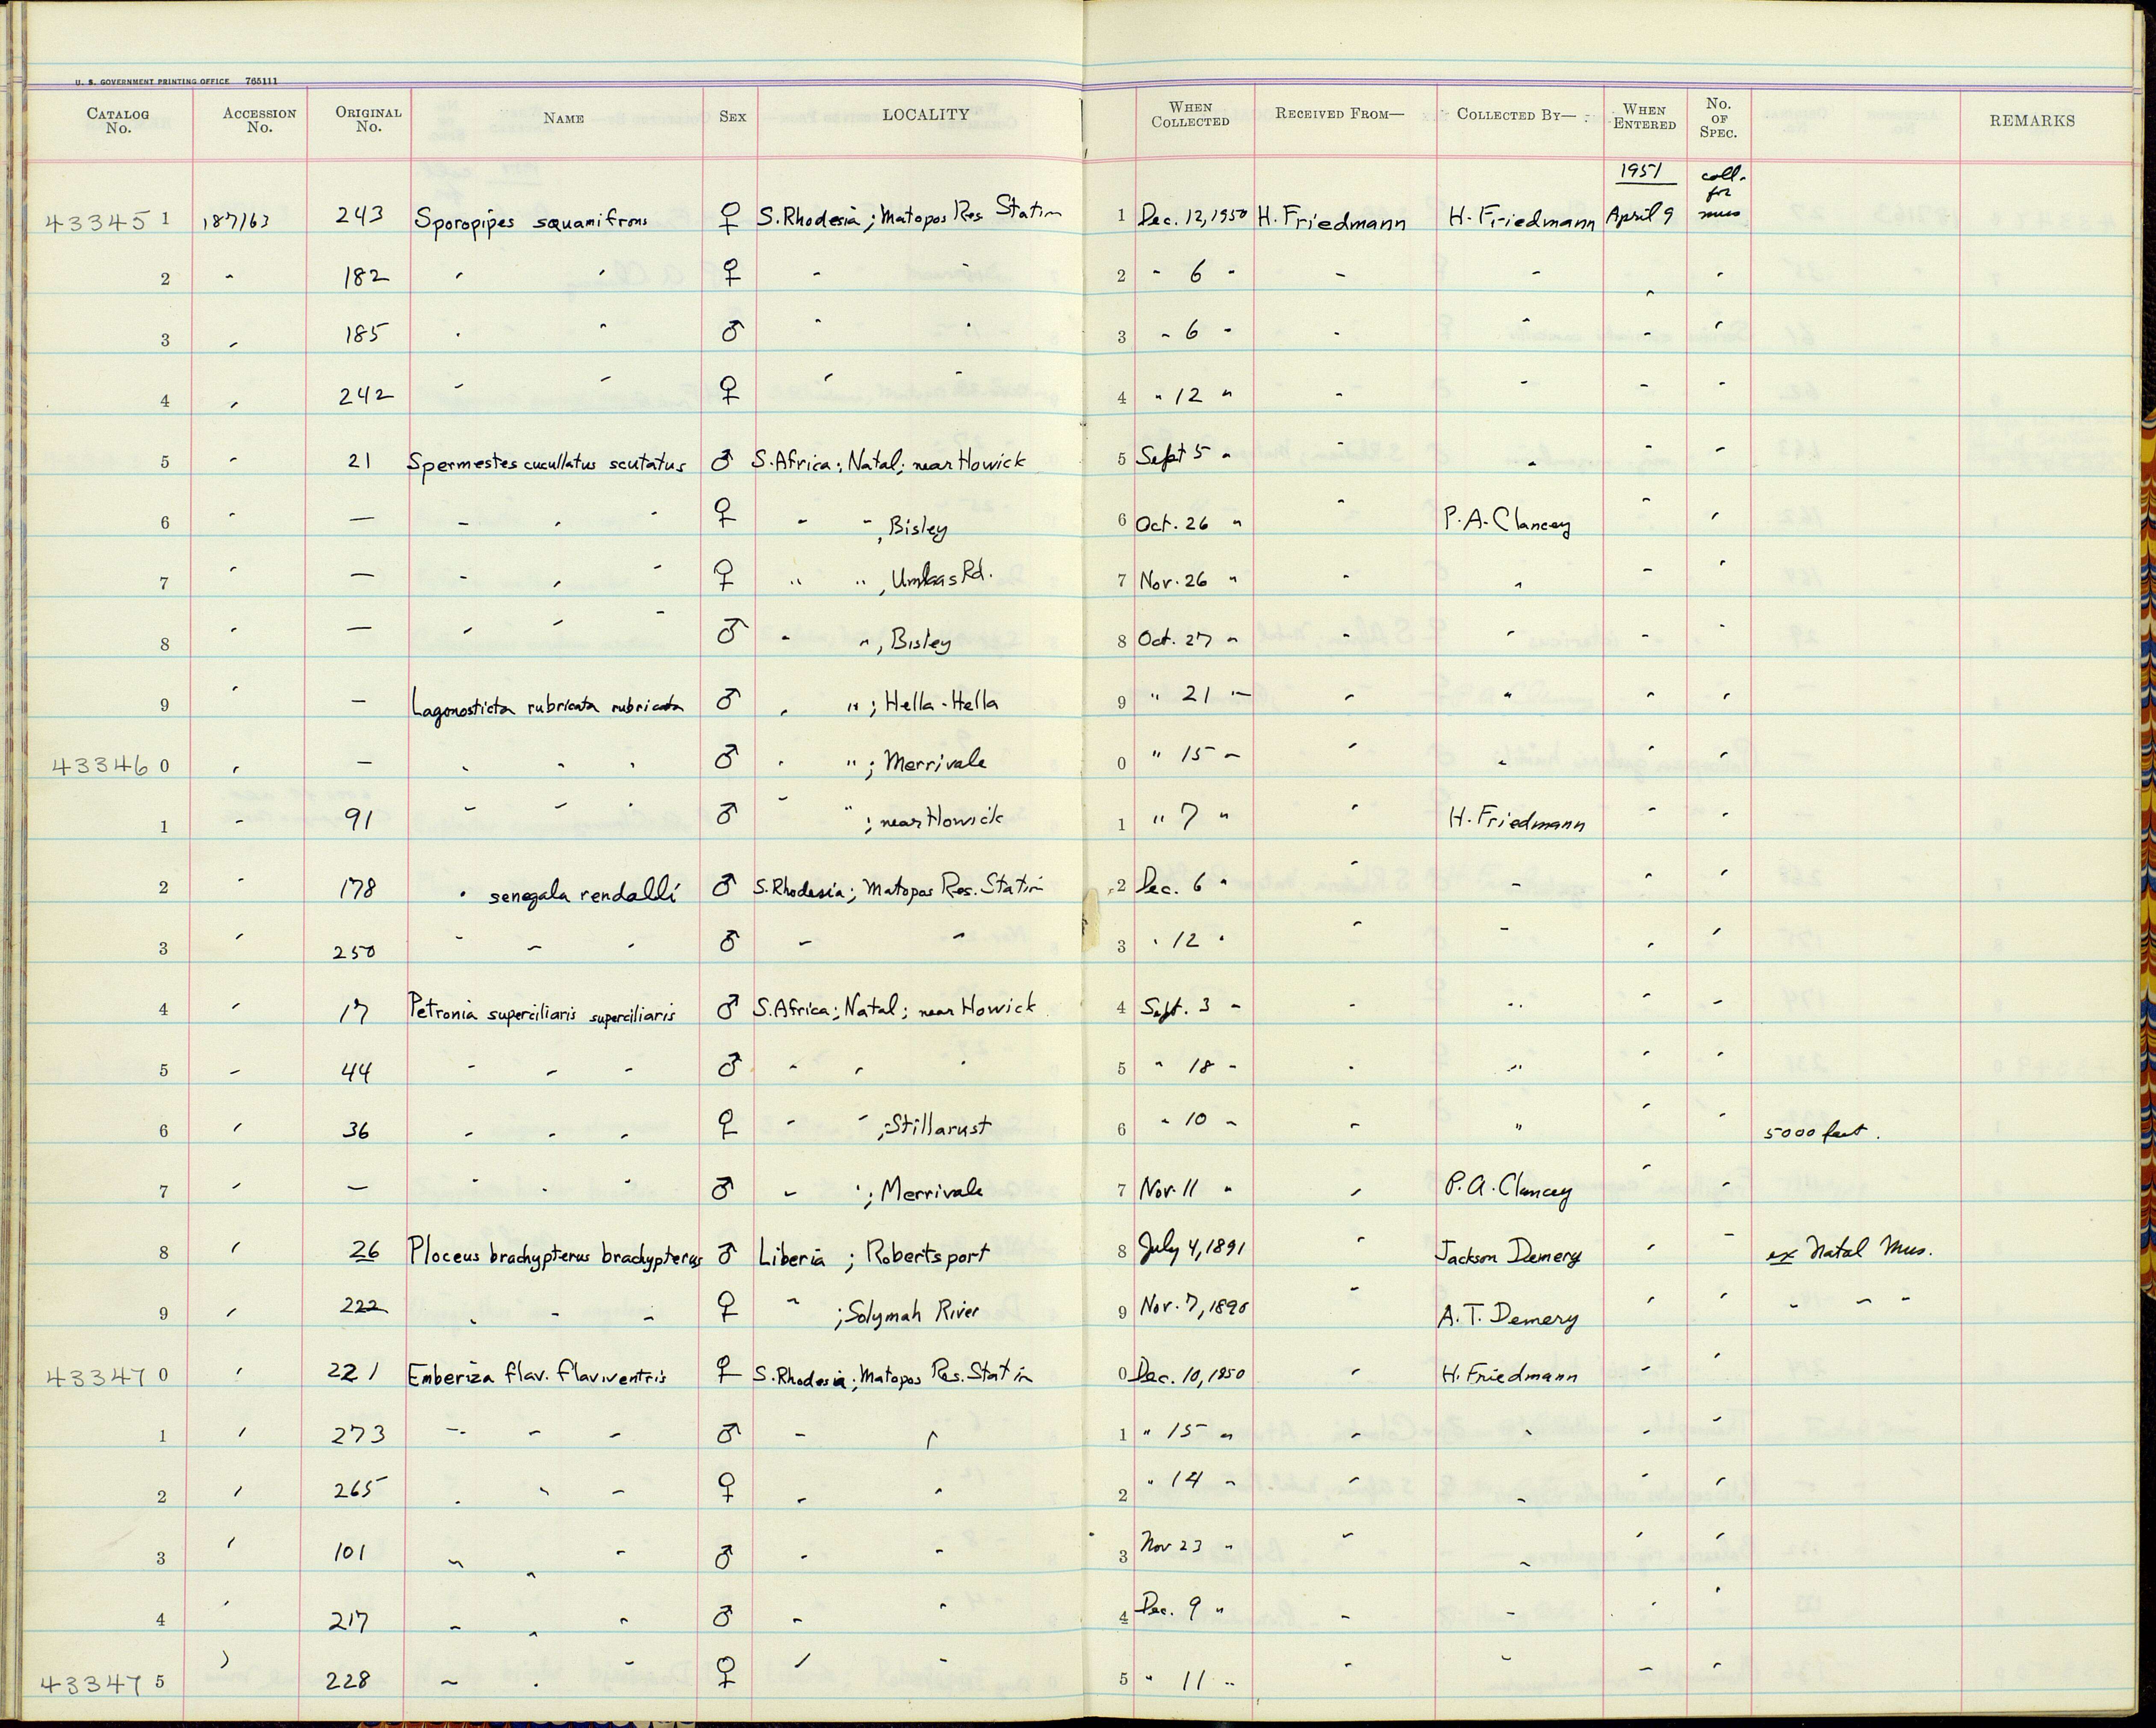 U. S. GOVERNMENT PRINTING OFFICE 765111
CATALOG No. ACCESSION No. ORIGINAL No. NAME SEX LOCALITY WHEN COLLECTED RECEIVED FROM— COLLECTED BY— WHEN ENTERED No. OF SPEC. REMARKS
1951 coll. for mus
433451 187163 243 Sporopipes squamifrons ♀ S. Rhodesia; Matopos Res. Station 1 Dec. 12, 1950 H. Friedmann H. Friedmann April 9
2 " 182 " " ♀ " " 2 " 6 " " " " "
3 " 185 " " ♂ " " 3 " 6 " " " " "
4 " 242 " " ♀ " " 4 " 12 " " " " "
5 " 21 Spermestes cucullatus scutatus ♂ S. Africa; Natal; near Howick 5 Sept 5 " " " " "
6 " — " " " ♀ " ", Bisley 6 Oct. 26 " " P. A. Clancey " "
7 " — " " " ♀ " ", Umlaas Rd. 7 Nov. 26 " " " " "
8 " — " " " ♂ " ", Bisley 8 Oct. 27 " " " " "
9 " — Lagonosticta rubricata rubricata ♂ " "; Hella-Hella 9 " 21 " " " " "
433460 " — " " " ♂ " "; Merrivale 0 " 15 " " " " "
1 " 91 " " " ♂ " "; near Howick 1 " 7 " " H. Friedmann " "
2 " 178 " senegala rendalli ♂ S. Rhodesia; Matopos Res. Station 2 Dec. 6 " " " " "
3 " 250 " " " ♂ " " 3 " 12 " " " " "
4 " 17 Petronia superciliaris superciliaris ♂ S. Africa; Natal; near Howick 4 Sept. 3 " " " " "
5 " 44 " " " ♂ " " " 5 " 18 " " " " "
6 " 36 " " " ♀ " "; Stillarust 6 " 10 " " " " " 5000 feet.
7 " — " " " ♂ " "; Merrivale 7 Nov. 11 " " P. A. Clancey " "
8 " 26 Ploceus brachypterus brachypterus ♂ Liberia; Robertsport 8 July 4, 1891 " Jackson Demery " " ex Natal Mus.
9 " 222 " " " ♀ "; Solymah River 9 Nov. 7, 1890 " A. T. Demery " " " " "
433470 " 221 Emberiza flav. flaviventris ♀ S. Rhodesia; Matopos Res. Station 0 Dec. 10, 1950 " H. Friedmann " "
1 " 273 " " " ♂ " " 1 " 15 " " " " "
2 " 265 " " " ♀ " " 2 " 14 " " " " "
3 " 101 " " " ♂ " " 3 Nov 23 " " " " "
4 " 217 " " " ♂ " " 4 Dec. 9 " " " " "
433475 " 228 " " " ♀ " " 5 " 11 " " " " "